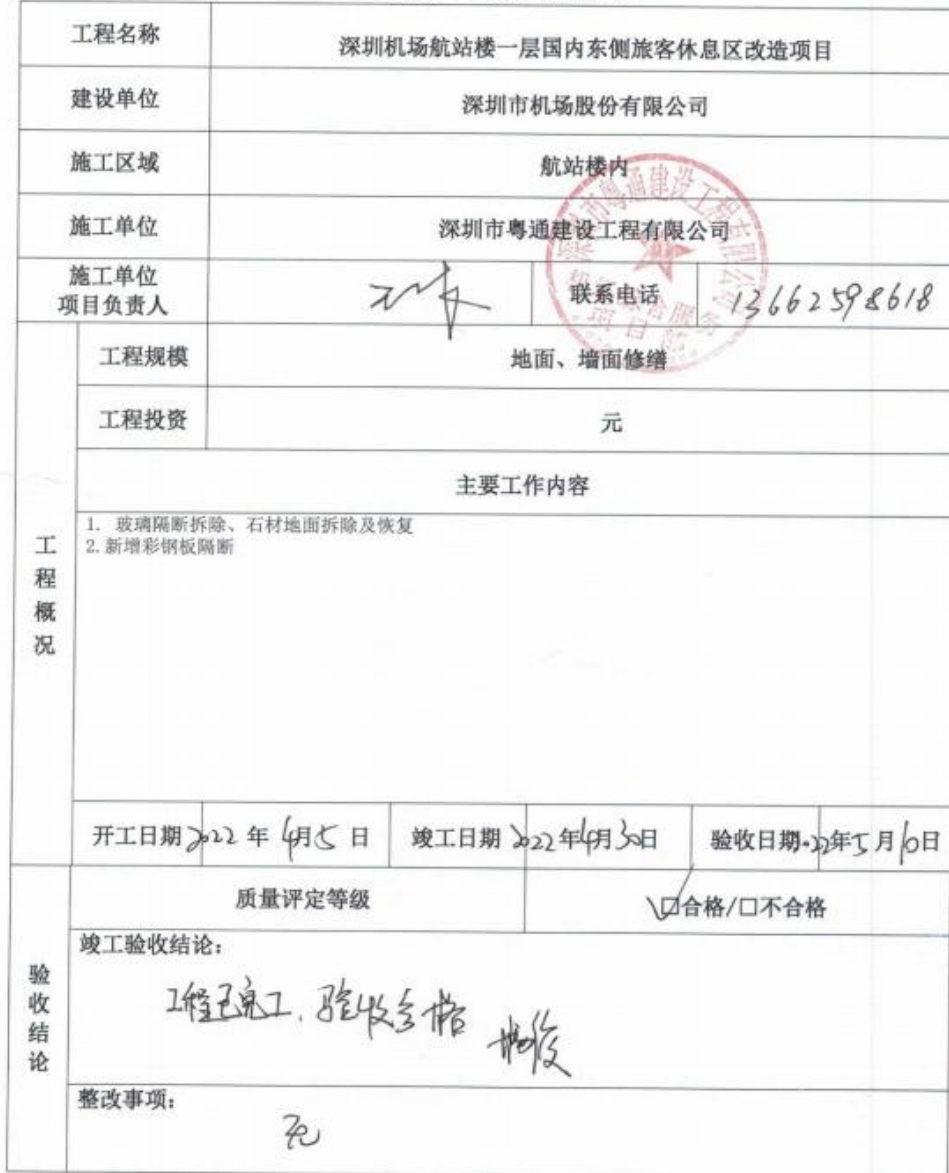 工程名称 深圳机场航站楼一层国内东侧旅客休息区改造项目
建设单位 深圳市机场股份有限公司
施工区域 航站楼内
施工单位 深圳市粤通建设工程有限公司
施工单位
项目负责人 联系电话 13662598618
深圳市粤通建设工程有限公司
工程规模 地面、墙面修缮
工程投资 元
主要工作内容
工程概况
1. 玻璃隔断拆除、石材地面拆除及恢复
2. 新增彩钢板隔断
开工日期 2022 年 4月5 日 竣工日期 2022 年4月30日 验收日期 22年5月10日
质量评定等级 ☑合格/□不合格
验收结论
竣工验收结论:
工程已完工、验收合格
整改事项:
无